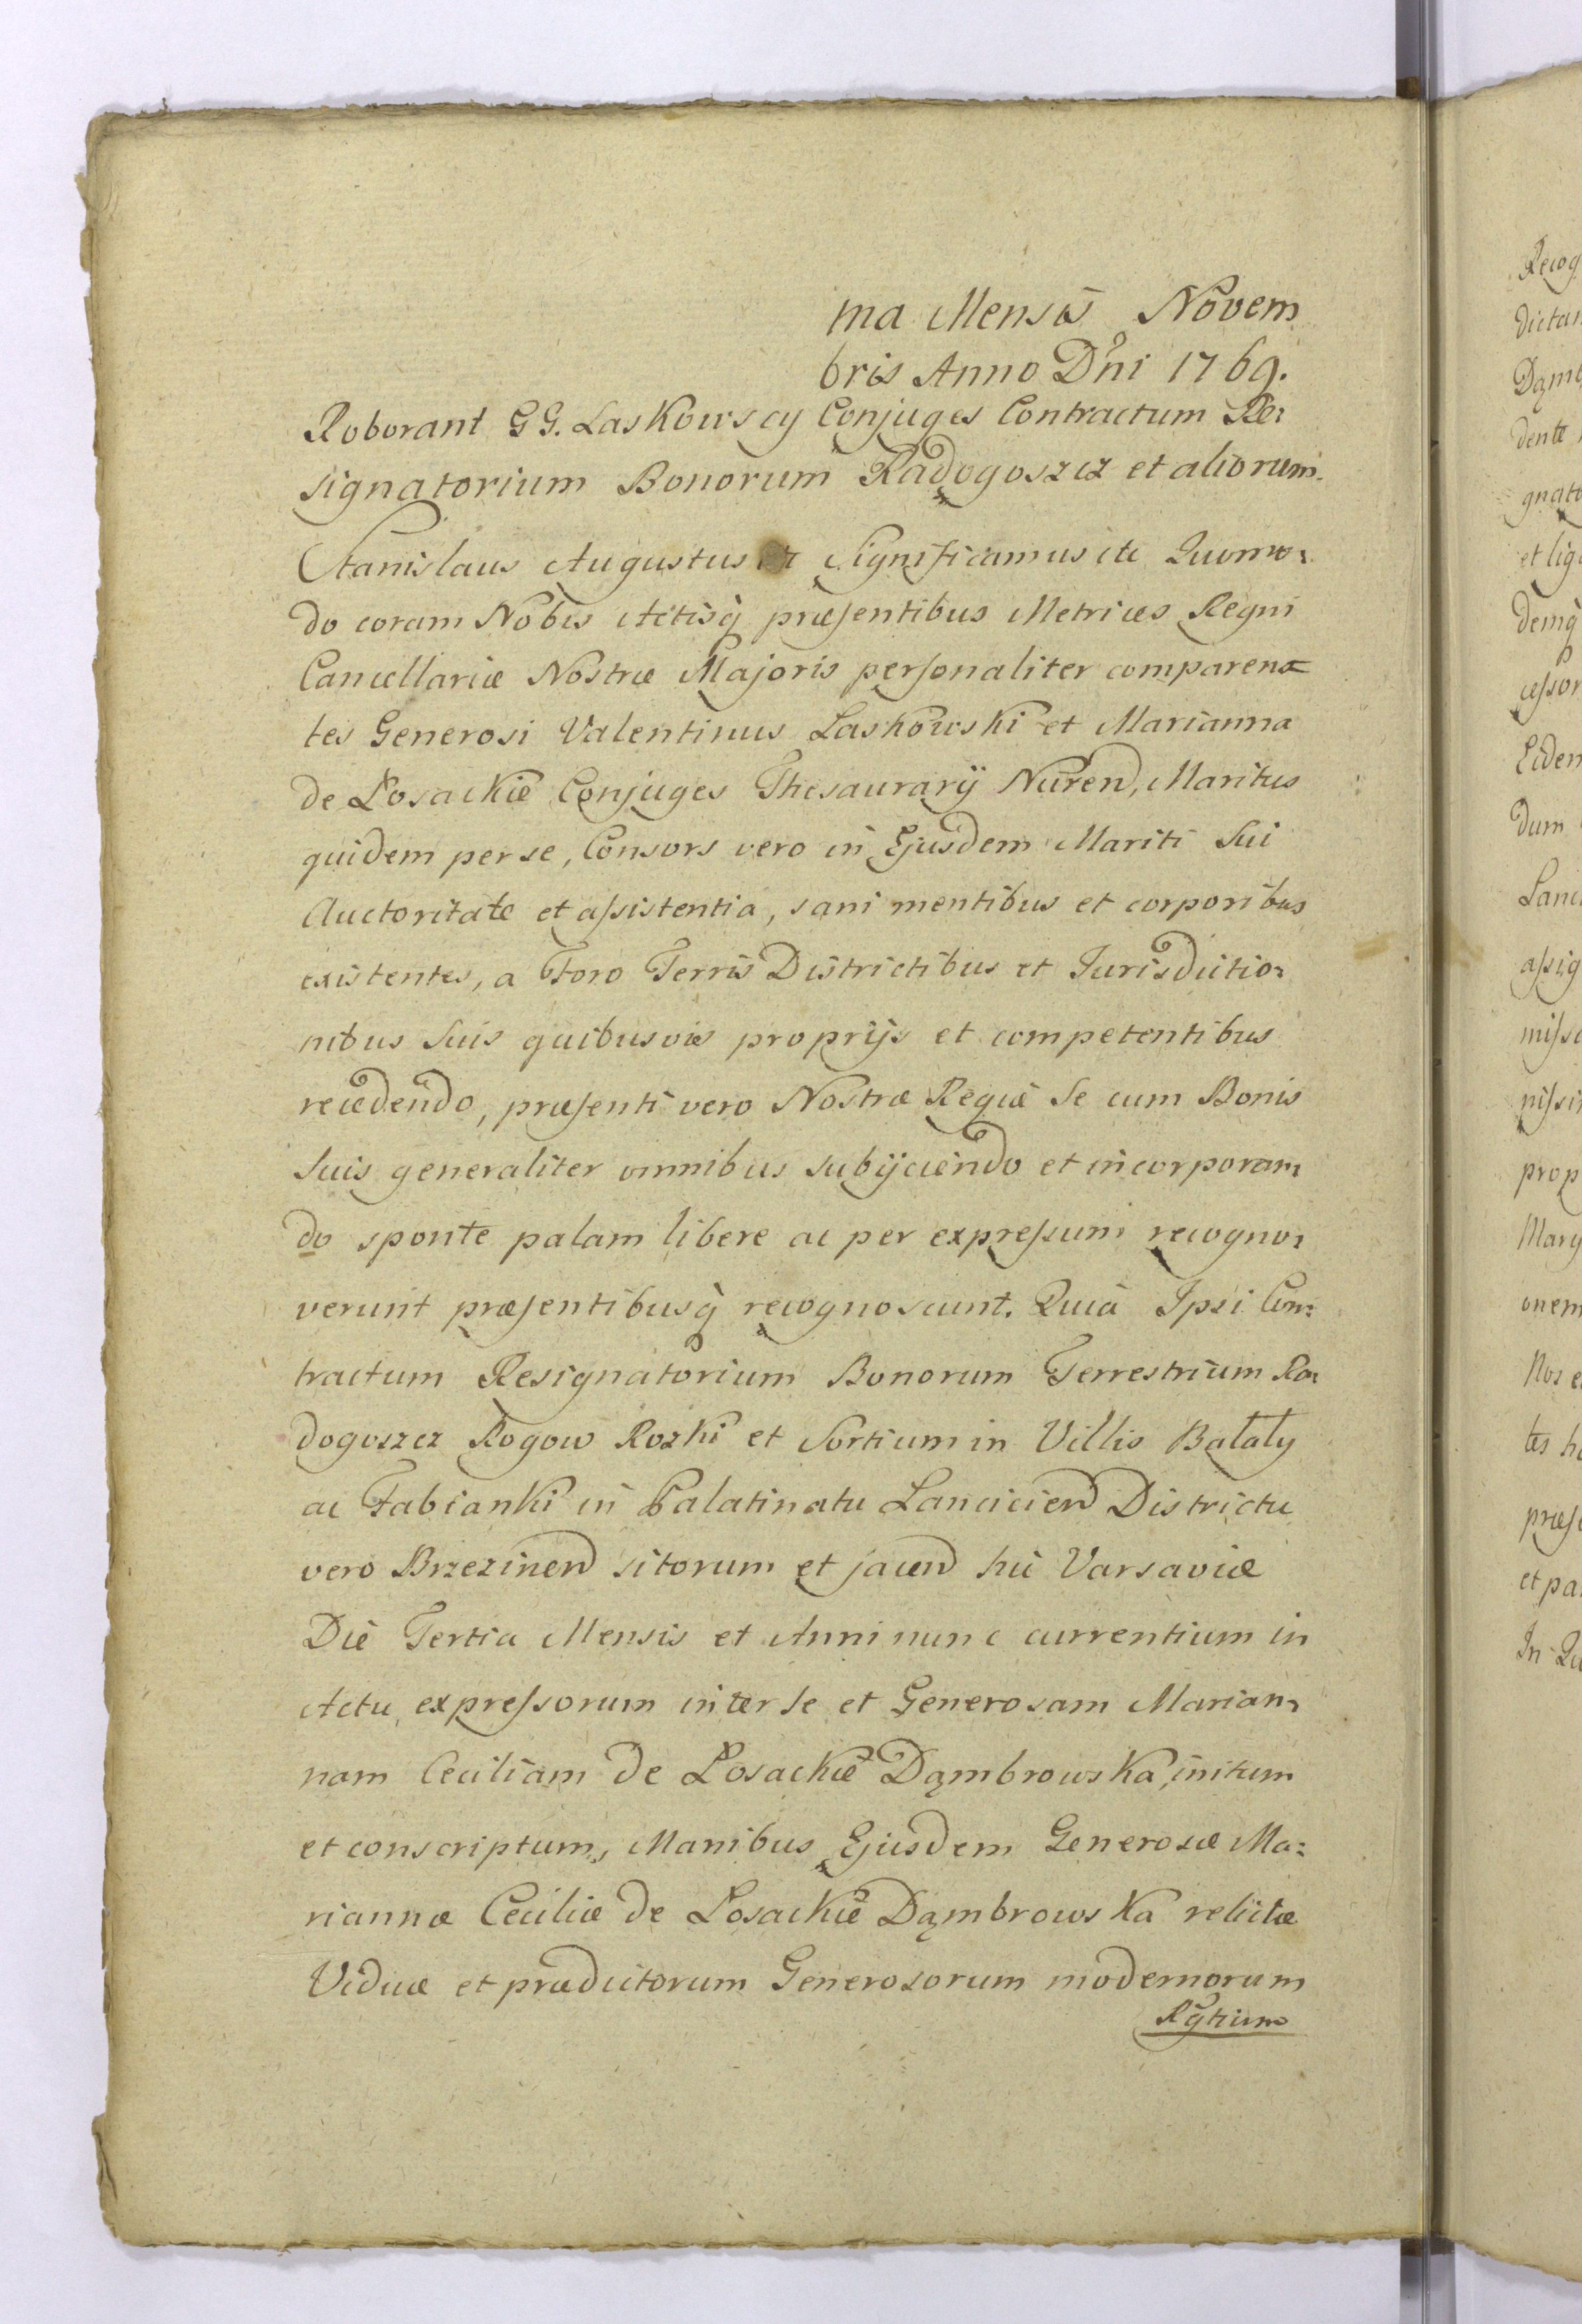 ma Mensis Novem
bris Anno Dni 1769.
Roborant GG. Laskowscy Conjuges Contractum Re:
signatorium Bonorum Radogoszcz et aliorum.
Stanislaus Augustus et Significamus etc Quomo:
do coram Nobis Actisq̀ præsentibus Metrices Regni
Cancellariæ Nostræ Majoris personaliter comparen:
tes Generosi Valentinus Laskowski et Marianna
de Łosackie Conjuges Thesaurarÿ Nuren, Maritus
quidem per se, Consors vero in Ejusdem Mariti Sui
Auctoritate et assistentia, sani mentibus et corporibus
existentes, a Foro Terris Districtibus et Jurisdictio:
nibus Suis quibusvis proprÿs et competentibus
recedendo, præsenti vero Nostræ Regiæ Se cum Bonis
Suis generaliter omnibus subÿciendo et incorporan:
do sponte palam libere ac per expressum recogno:
verunt præsentibusq̀ recognoscunt. Quia Ipsi Con:
tractum Resignatorium Bonorum Terrestrium Ra:
dogoszcz Rogow Rozki et Sortium in Villis Bałaty
ac Fabianki in Palatinatu Lancicien Districtu
vero Brzezinen sitorum et jacen hic Varsaviæ
Die Tertia Mensis et Anni nunc currentium in
Actu expressorum inter se et Generosam Marian:
nam Ceciliam de Łosackie Dąmbrowska, initum
et conscriptum, Manibus Ejusdem Generosæ Ma:
riannæ Ceciliæ de Łosackie Dąmbrowska relictæ
Viduæ et prædictorum Generosorum modernorum
Rgtium
Recog
dictar
Dąmb
dente
gnato
et lig
demq̀
cessor
Eiden
dum
Lanc
assig
misso
nissi
prop
Mary
onem
Nos e
tes h
præs
et pa
In Qu